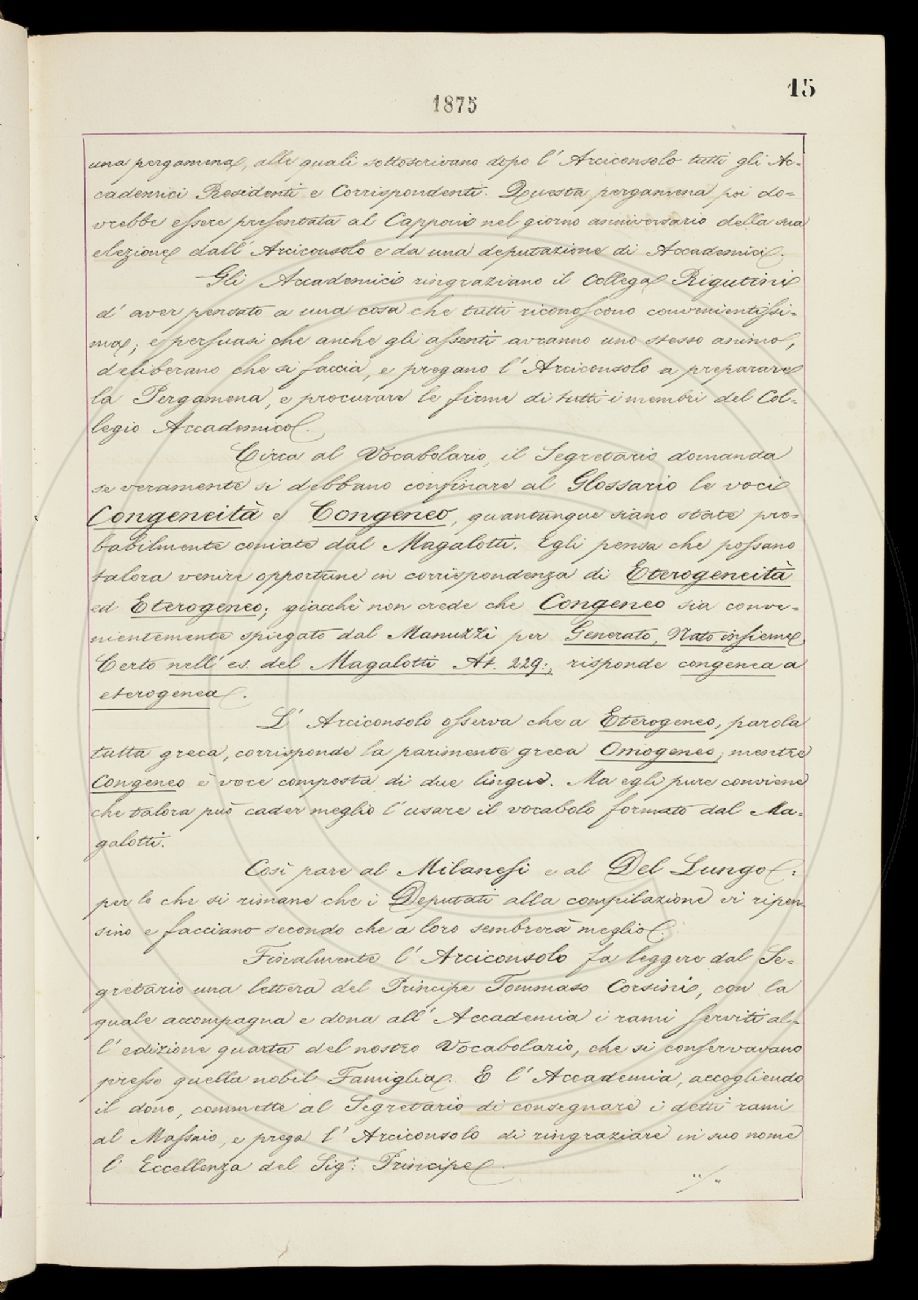 15
1875
una pergamena, alla quale sottoscrivano dopo l'Arciconsolo tutti gli Ac-
cademici Residenti e Corrispondenti. Questa pergamena poi do-
vrebbe essere presentata al Capponi nel giorno anniversario della sua
elezione dall'Arciconsolo e da una deputazione di Accademici.
Gli Accademici ringraziano il Collega Rigutini
d'aver pensato a una cosa che tutti riconoscono convenientissi-
ma; e persuasi che anche gli assenti avranno uno stesso animo,
deliberano che si faccia, e pregano l'Arciconsolo a preparare
la Pergamena, e procurare le firme di tutti i membri del Col-
legio Accademico.
Circa al Vocabolario, il Segretario domanda
se veramente si debbano confinare al Glossario le voci
Congeneità e Congeneo, quantunque siano state pro-
babilmente coniate dal Magalotti. Egli pensa che possano
talora venire opportune in corrispondenza di Eterogeneità
ed Eterogeneo; giacchè non crede che Congeneo sia conve-
nientemente spiegato dal Manuzzi per Generato, Nato insieme.
Certo nell'es. del Magalotti At. 229:, risponde congenea a
eterogenea.
L'Arciconsolo osserva che a Eterogeneo, parola
tutta greca, corrisponde la parimente greca Omogeneo; mentre
Congeneo è voce composta di due lingue. Ma egli pure conviene
che talora può cader meglio l'usare il vocabolo formato dal Ma-
galotti.
Così pare al Milanesi e al Del Lungo:
per lo che si rimane che i Deputati alla compilazione vi ripen-
sino e facciano secondo che a loro sembrerà meglio.
Finalmente l'Arciconsolo fa leggere dal Se-
gretario una lettera del Principe Tommaso Corsini, con la
quale accompagna e dona all'Accademia i rami serviti al-
l'edizione quarta del nostro Vocabolario, che si conservavano
presso quella nobil Famiglia. E l'Accademia, accogliendo
il dono, commette al Segretario di consegnare i detti rami
al Massaio, e prega l'Arciconsolo di ringraziare in suo nome
l'Eccellenza del Sig: Principe.
"/"